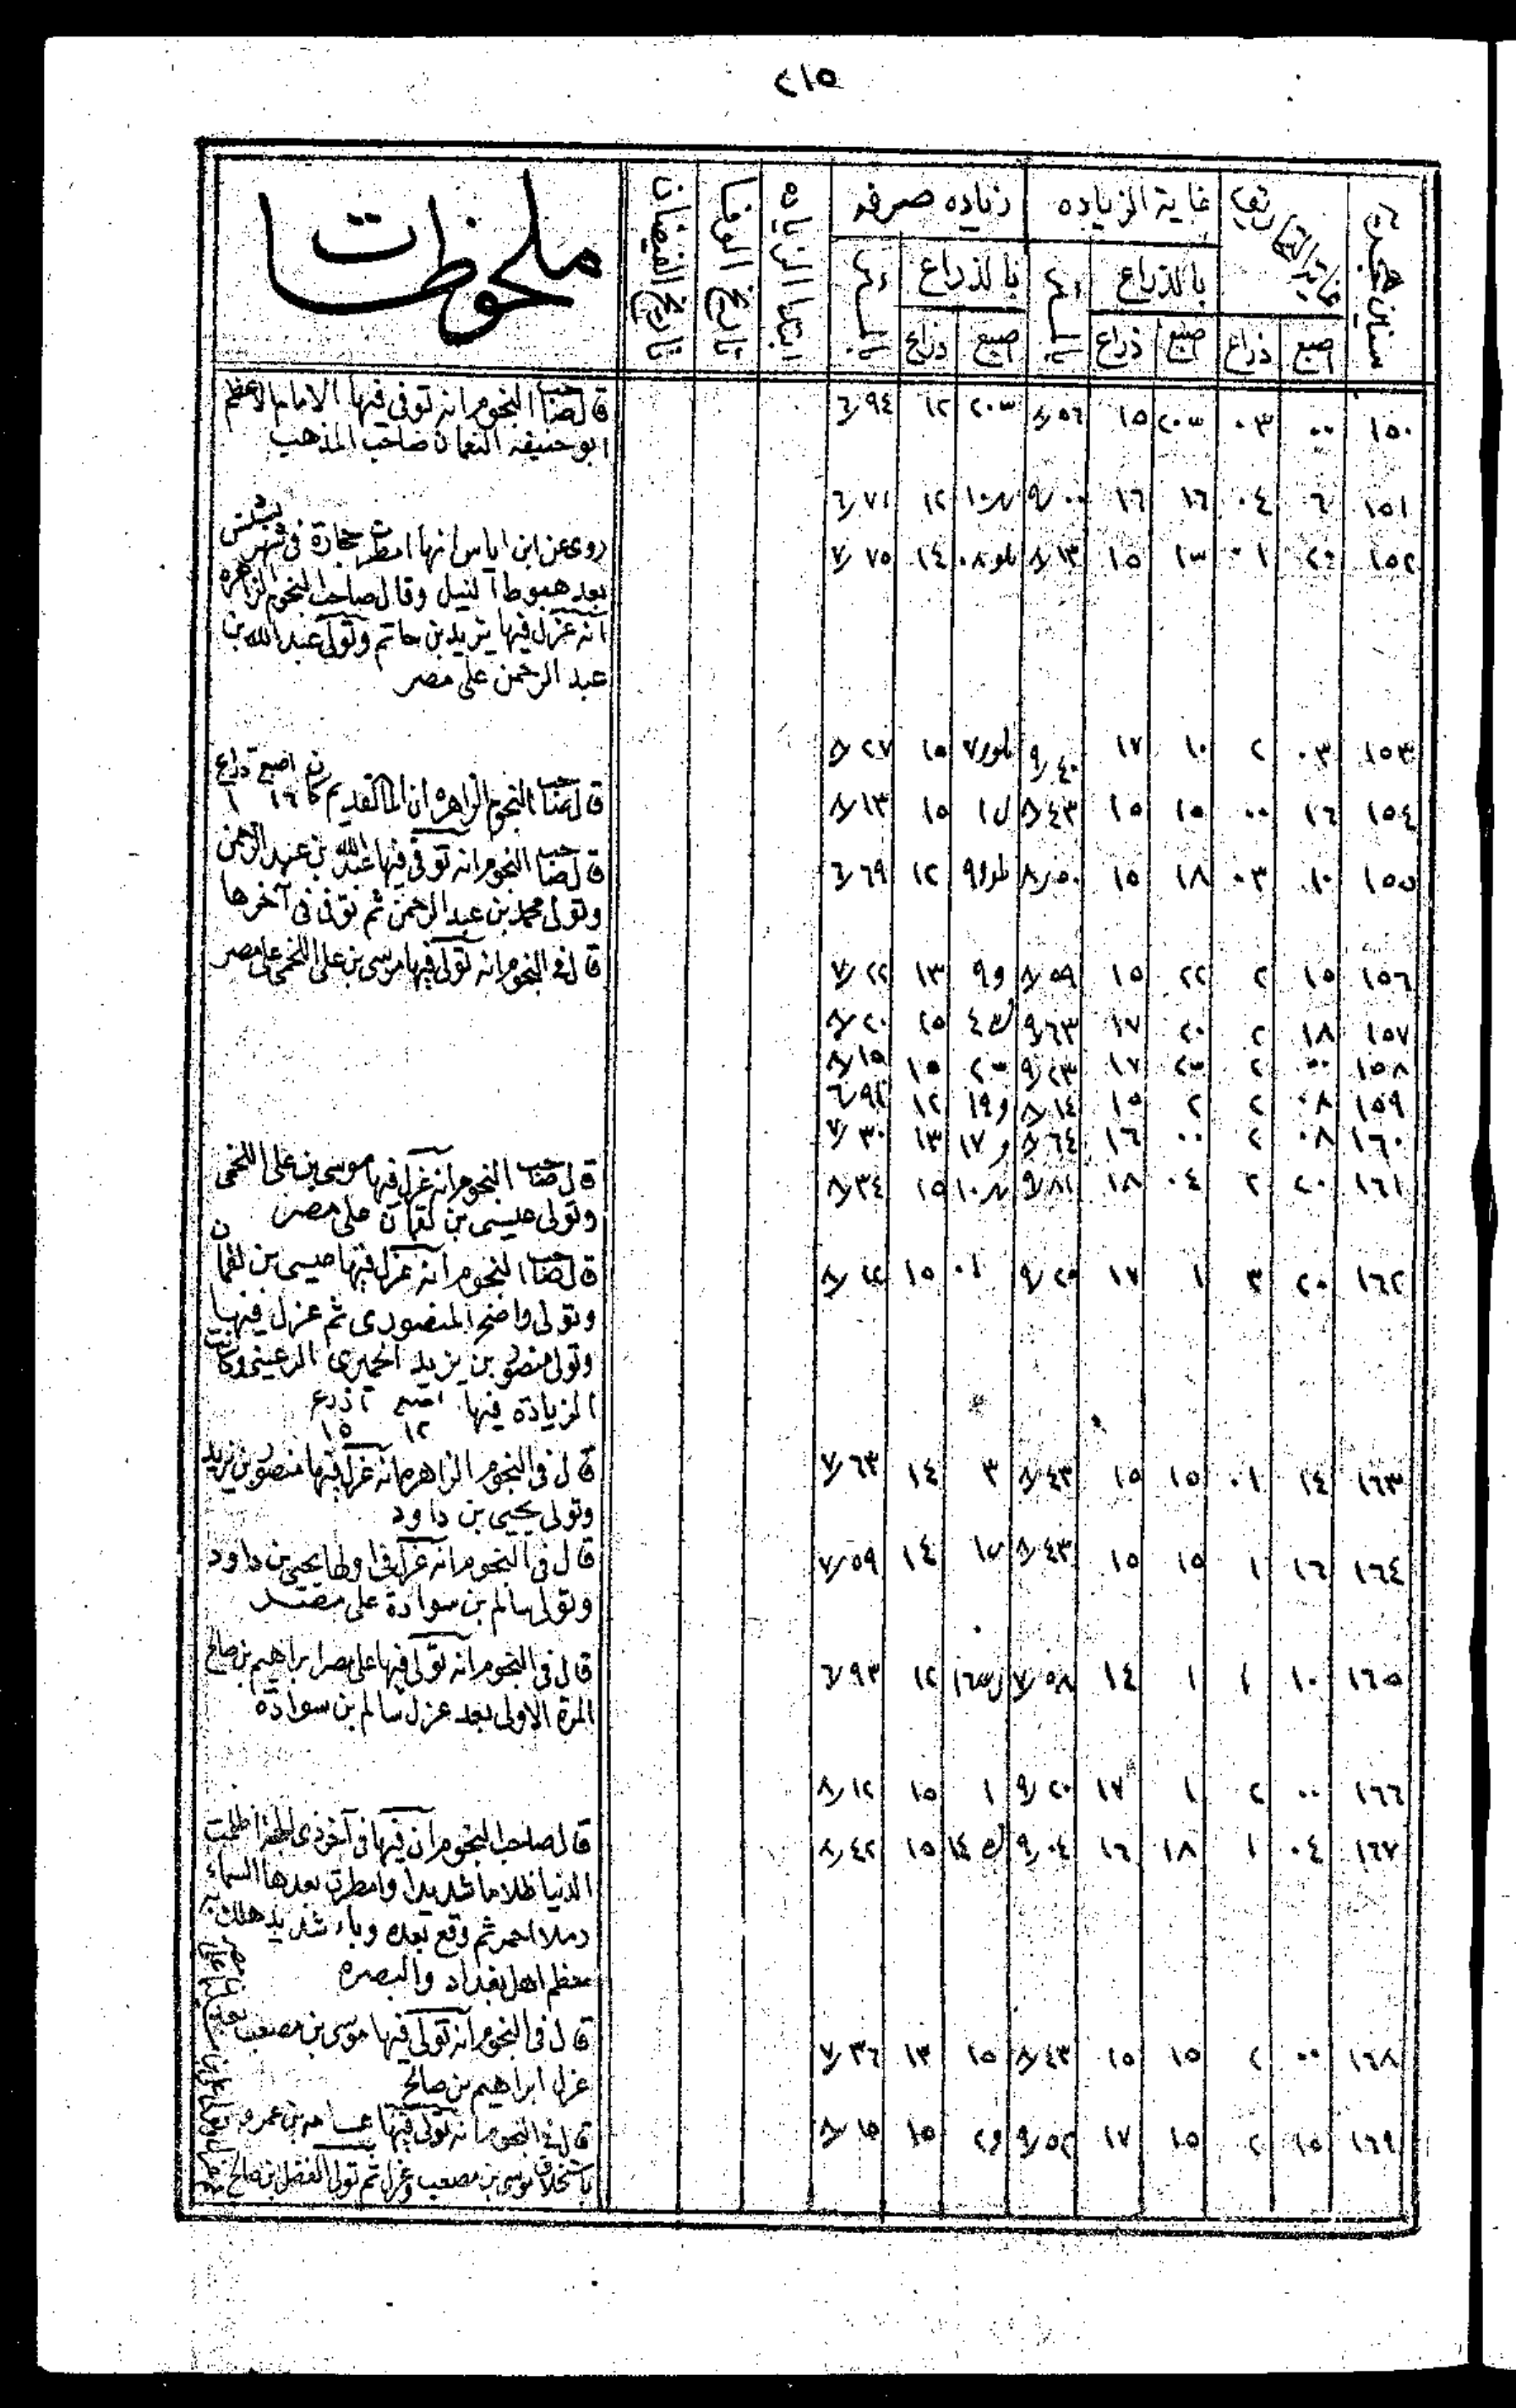 ٢١٥
سنين هجرية
غاية التحاريق
غاية الزياده
زياده صرفه
ابتدا الزياده
تاريخ الوفا
تاريخ الفيضان
ملحوظات
بالذراع
بالذراع
اصبع ذراع اصبع ذراع اصبع ذراع
١٥٠ ٠٠ ٠٣ ١٥ ٨/٥٦ ١٢ ٦/٩٤
قال صاحب النجوم انه توفى فيها الامام الاعظم
ابو حنيفة النعمان صاحب المذهب
١٥١ ٦ ٠٤ ١٦ ١٦ ٩/٠٠ ١٢ ٦/٧١
١٥٢ ٠١ ١٥ ٨/١٣ ١٤ ٧/٧٥
روى عن ابن اياس انها امطرت حجارة فى شهر بشنس
بعد هبوط النيل وقال صاحب النجوم الزاهرة
انه عزل فيها يزيد بن حاتم وتولى عبد الله بن
عبد الرحمن على مصر
١٥٣ ٠٣ ٢ ١٠ ١٧ ٩/٤٠ ١٥ ٨/٢٧
١٥٤ ١٦ ٠٠ ١٥ ١٥ ٨/٤٣ ١٥ ٨/١٣
قال صاحب النجوم الزاهره ان الما القديم كان اصبع ١٦ ذراع ١
١٥٥ ١٠ ٠٣ ١٨ ١٥ ٨/٥٠ ١٢ ٦/٦٩
قال صاحب النجوم انه توفى فيها عبد الله بن عبد الرحمن
وتولى محمد بن عبد الرحمن ثم توفى فى آخرها
١٥٦ ١٥ ٢ ٢٢ ١٥ ٨/٥٩ و٩ ١٣ ٧/٢٢
قال فى النجوم انه تولى فيها موسى بن على اللخمى على مصر
١٥٧ ١٨ ٢ ٢٠ ١٧ ٩/٦٣ ١٥ ٨/٢٠
١٥٨ ٠٠ ٢ ١٧ ٩/٢٣ ١٥ ٨/١٥
١٥٩ ٠٨ ٢ ٢ ١٥ ٨/١٤ و١٩ ١٢
١٦٠ ٠٨ ٢ ٠٠ ١٦ ٨/٦٤ و١٧ ١٣ ٧/٣٠
١٦١ ٢٠ ٢ ٠٤ ١٨ ٩/٨١ ١٥ ٨/٣٤
قال صاحب النجوم انه عزل فيها موسى بن على اللخمى
وتولى عيسى بن لقمان على مصر
١٦٢ ٢٠ ٣ ١ ١٧ ٩/٢٥ ٠١ ١٥ ٨/١٢
قال صاحب النجوم انه عزل فيها عيسى بن لقمان
وتولى واضح المنصورى ثم عزل فيها
وتولى منصور بن يزيد الحميرى الرعينى وكانت
الزيادة فيها اصبع ١٢ اذرع ١٥
١٦٣ ١٤ ٠١ ١٥ ١٥ ٨/٤٣ ٣ ١٤ ٧/٦٣
قال فى النجوم الزاهره انه عزل فيها منصور بن يزيد
وتولى يحيى بن داود
١٦٤ ١٦ ١ ١٥ ١٥ ٨/٤٣ ١٤ ٧/٥٩
قال فى النجوم انه عزل فى اولها يحيى بن داود
وتولى سالم بن سوادة على مصر
١٦٥ ١٠ ١ ١ ١٤ ٧/٥٨ ١٢ ٦/٩٣
قال فى النجوم انه تولى فيها على مصر ابراهيم بن صالح
المرة الاولى بعد عزل سالم بن سوادة
١٦٦ ٠٠ ٢ ١ ١٧ ٩/٢٠ ١ ١٥ ٨/١٢
١٦٧ ٠٤ ١ ١٨ ١٦ ٩/٠٤ ١٥ ٨/٤٢
قال صاحب النجوم ان فيها فى آخر ذى الحجة اظلمت
الدنيا ظلاما شديدا وامطرت بعدها السماء
رملا احمر ثم وقع بعده وباء شديد هلك به
معظم اهل بغداد والبصره
١٦٨ ٠٠ ٢ ١٥ ١٥ ٨/٤٣ ١٥ ١٣ ٧/٣٦
قال فى النجوم انه تولى فيها موسى بن مصعب بعد
عزل ابراهيم بن صالح
١٦٩ ١٥ ٢ ١٥ ١٧ ٩/٥٢ و٢ ١٥ ٨/١٥
قال فى النجوم انه تولى فيها عسامه بن عمرو
باستخلاف موسى بن مصعب وعزل ثم تولى الفضل بن صالح